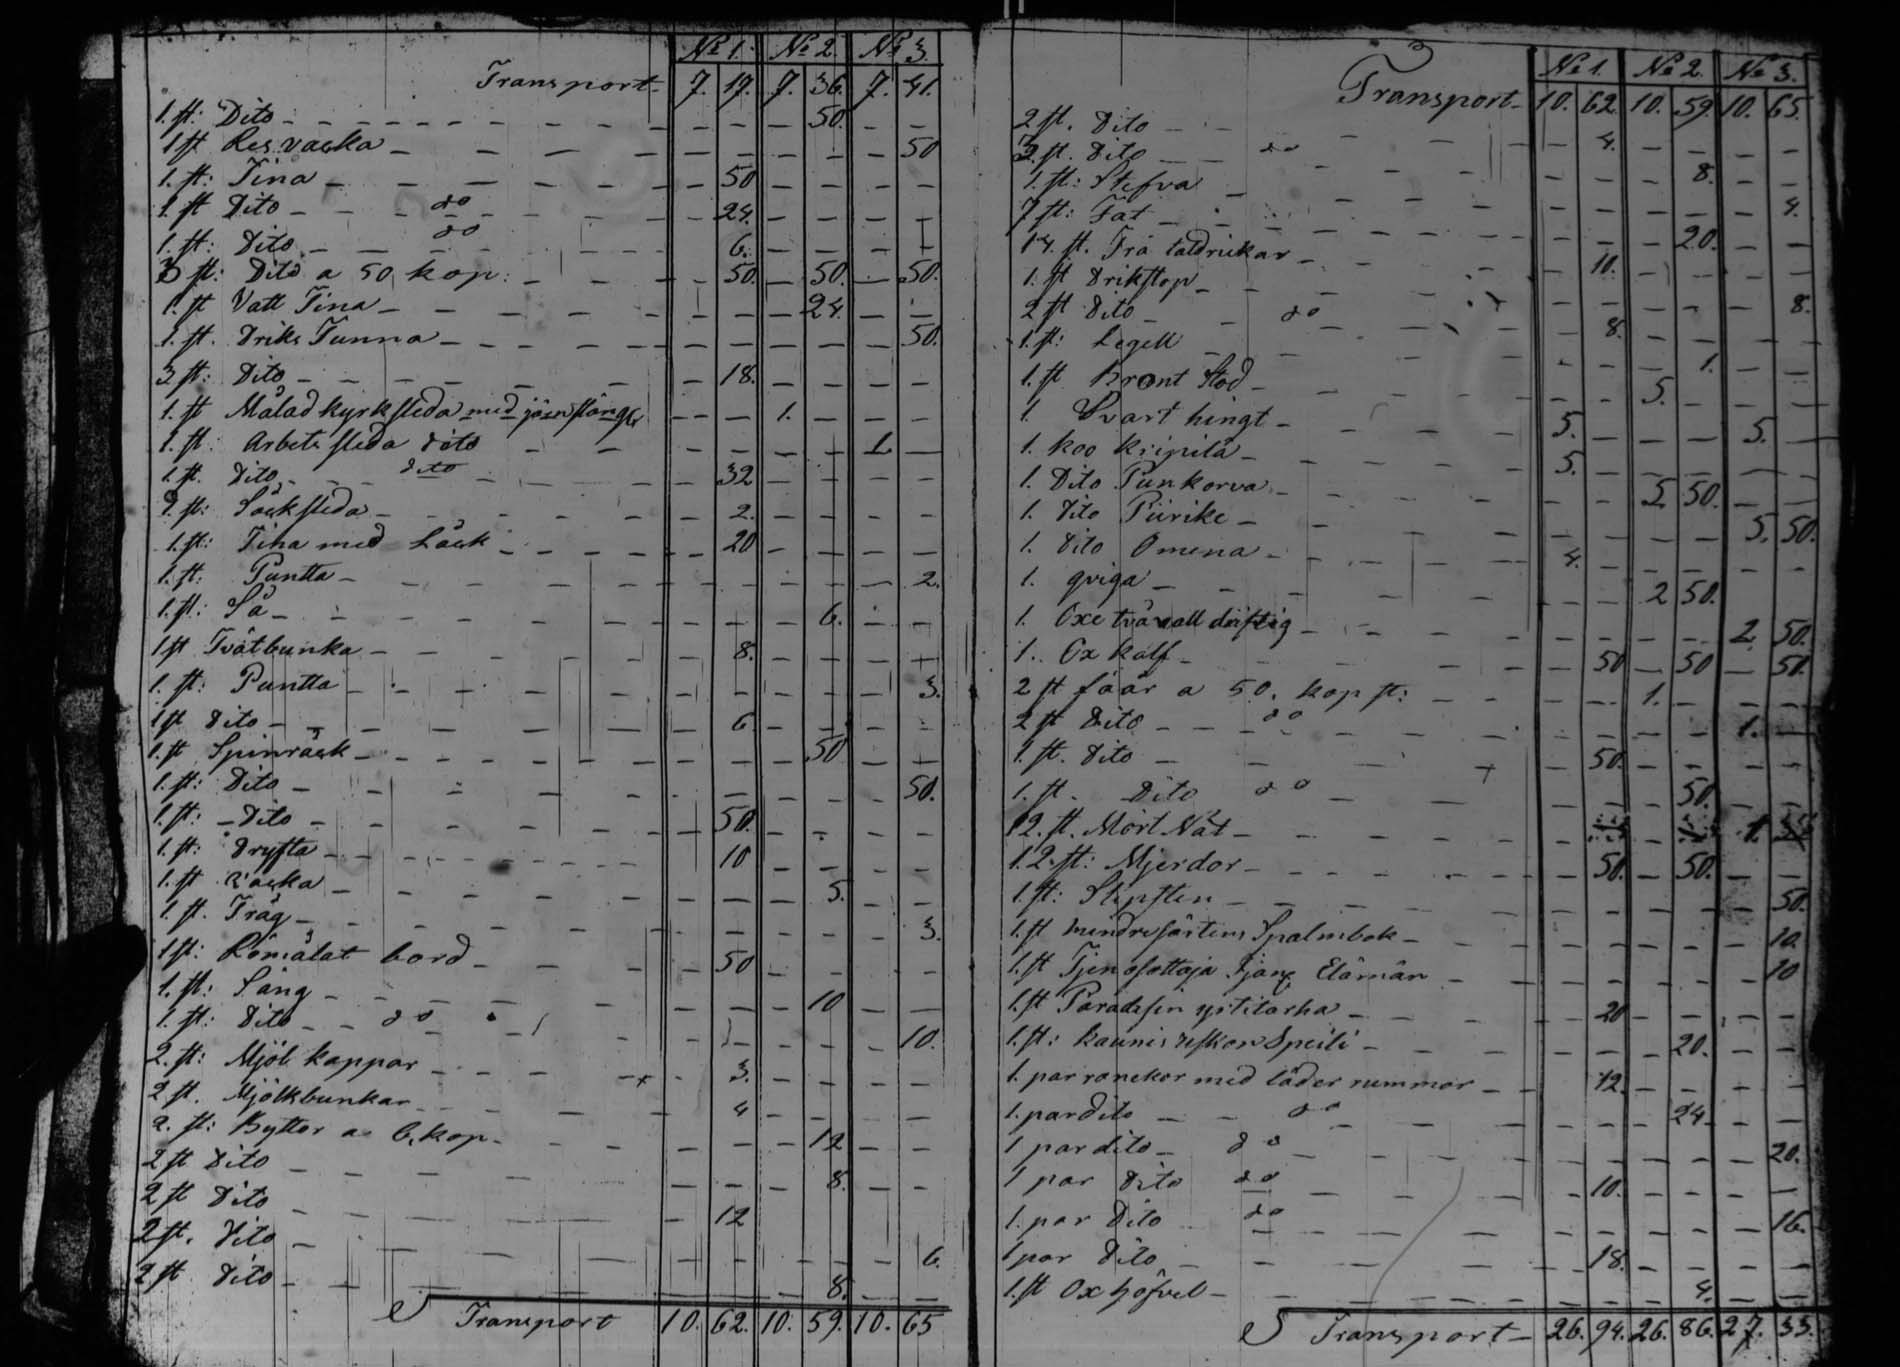 No 1. No 2. No 3.
Transport 7. 19. 7. 36. 7. 41.
1. st: Dito 50.
1 st Res vacka 50
1. st: Tina 50
1. st Dito do 24.
1. st: Dito do 6.
3 st: Dito a 50 kop: 50. 50. 50.
1. st Vatt Tina 24.
1. st. Driks Tunna 50.
3 st: Dito 18.
1. st Målad kyrksleda med järnstänger 1.
1. st: Arbets sleda dito 1.
1. st. Dito dito 32
st: Låcksleda 2.
1. st: Tina med Låck 20
1. st: Puntta 2.
1. st: Så 6.
1 st Tvätbunka 8.
1. st: Puntta 3.
1 st Dito 6.
1. st Spinråck 50
1. st: Dito 50.
1. st: Dito 50.
1. st: Dryfta 10
1. st vacka 5.
1. st. Tråg 3.
1 st: Römålat bord 50
1. st: Säng 10
1. st: Dito do 10.
2. st: Mjöl kappar 3.
2 st. Mjölkbunkar 4
2. st: Byttor a 6. kop 12
2 st Dito 8.
2 st Dito 12
2 st. Dito 6.
2 st Dito 8.
Transport 10. 62. 10. 59. 10. 65
No 1. No 2. No 3.
Transport 10. 62. 10. 59. 10. 65.
2 st. Dito 4.
3. st. Dito do 8.
1. st: Stefva 4.
7 st: Fat 20.
14. st. Trä taldrickar 10.
1. st Drikstop 8.
2 st Dito do 8.
1. st: Legell 1.
1. st Bront Stod 5.
1. Svart hingt 5. 5.
1. koo kripilä 5.
1. Dito Punkorva 5. 50.
1. Dito Piirike 5. 50.
1. Dito Omena 4.
1. qviga 2 50.
1. Oxe två 2. 50.
1. Ox kalf 50 50 50.
2 st fåår a 50. kop st: 1.
2 st Dito do 1.
1. st. Dito 50.
1. st. Dito do 50.
12. st. Mört Nät
12. st: Mjerdor 50. 50.
1. st: Slipsten 50.
1. st Spalmbok 10.
1. st Elämän 10
1. st Paradisin yrtitarha 20
1. st: kaunis uskon Speili 20.
1. par ranckor med läder rummor 12.
1. par dito do 24
1 par dito do 20.
1 par Dito do 10.
1. par Dito do 16.
1 par Dito 18.
1. st Ox höfvel 4.
Transport 26. 94. 26. 86. 27. 33.